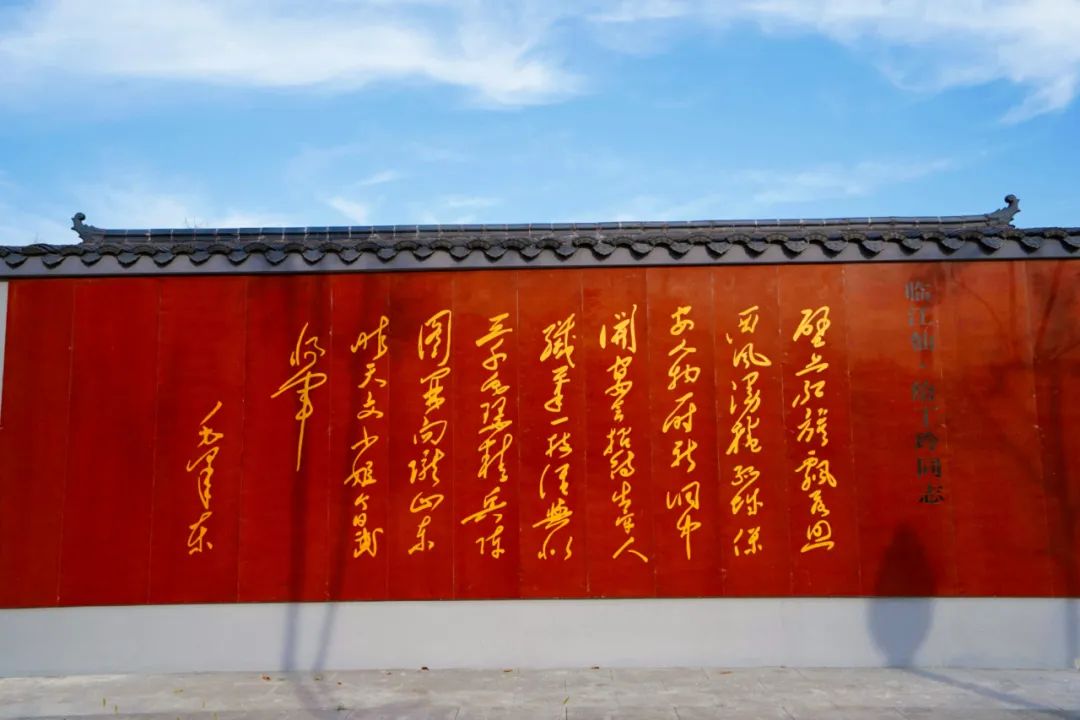 临江仙·给丁玲同志
壁上红旗飘落照
西风漫卷孤城保
安人物一时新洞中
開宴会招待出牢人
纖筆一枝谁與似
三千毛瑟精兵阵
图开向陇山东
昨天文小姐今日武
将军
毛泽东